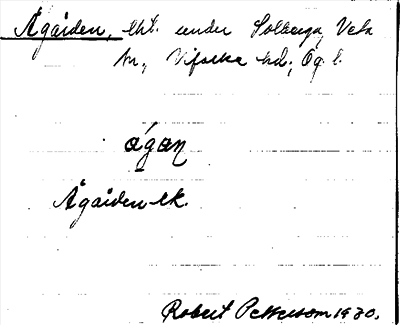 Ågården, lht. under Solberga, Veta
sn., Vifolka hd., Ög. l.
ågan
Ågården ek.
Robert Pettersson 1930.